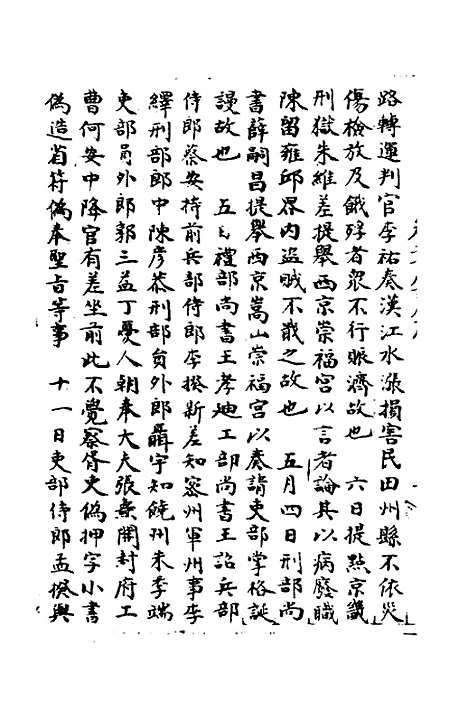 路轉運判官李祐奏漢江水漲損害民田州縣不依災
傷檢放及餓殍者眾不行賑濟故也　六日提㸃京畿
刑獄朱維差提舉西京崇福宮以言者論其以病廢職
陳留雍邱界内盜賊不戢之故也　五月四日刑部尚
書薛嗣昌提舉西京嵩山崇福宮以奏請吏部掌格誕
謾故也　五日禮部尚書王孝迪工部尚書王詔兵部
侍郎蔡安持前兵部侍郎李揆新差知密州軍州事李
繹刑部郎中陳彥恭刑部員外郎聶宇知饒州朱季端
吏部員外郎郭三益丁憂人朝奉大夫張 開封府工
曹何安中降官有差坐前此不覺察胥吏偽押字小書
偽造省符偽奉聖旨等事　十一日吏部侍郎孟揆與